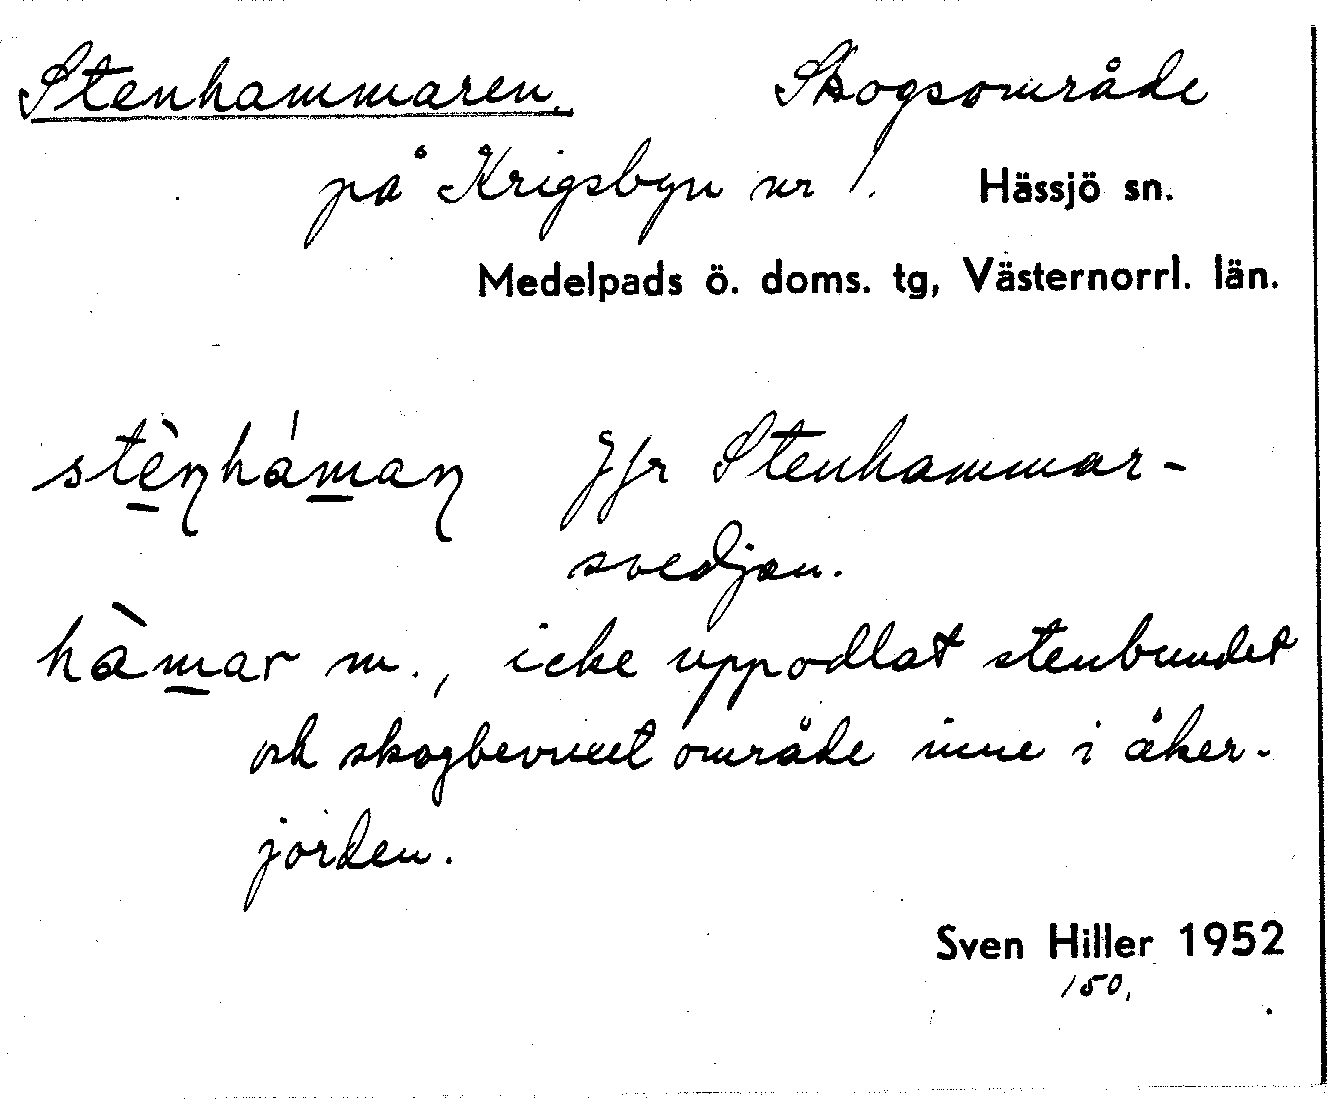 Stenhammaren. Skogsområde
på Krigsbyn nr 1. Hässjö sn.
Medelpads ö. doms. tg, Västernorrl. län.
stèn̡háman̡ Jfr Stenhammar-
svedjan.
hàmar m., icke uppodlat stenbundet
och skogbevuxet område inne i åker-
jorden.
Sven Hiller 1952
150.